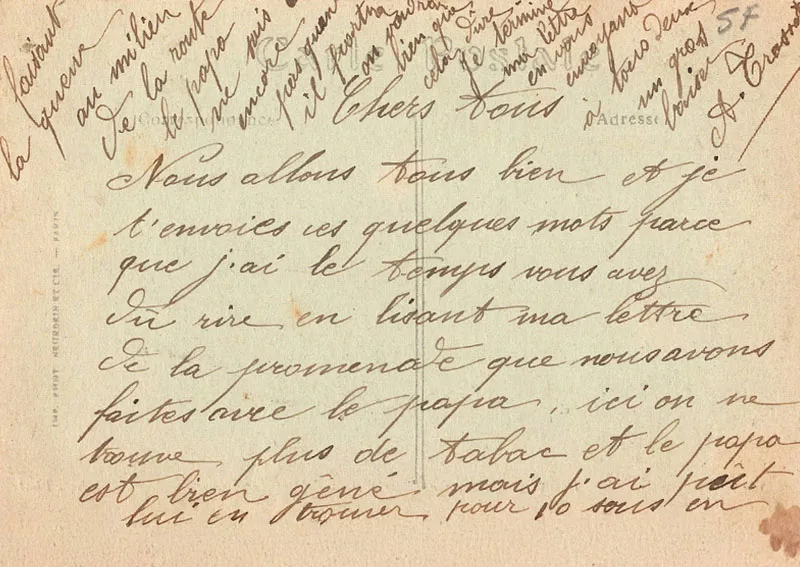 Carte Postale
Correspondance
Adresse
Chers tous
Nous allons tous bien et je
t'envoies ces quelques mots parce
que j'ai le temps vous avez
dû rire en lisant ma lettre
de la promenade que nous avons
faites avec le papa, ici on ne
trouve plus de tabac et le papa
est bien gêné mais j'ai pêut
lui en trouver pour 10 sous en
faisant
la queue
au milieu
de la route
le papa
ne suis
encore
pas quan
il partira
on voudrai
bien que
cela dure
Je termine
ma lettre
en vous
envoyant
à tous deux
un gros
baiser
A.
SF
IMP. PHOT. NEURDEIN ET CIE. — PARIS